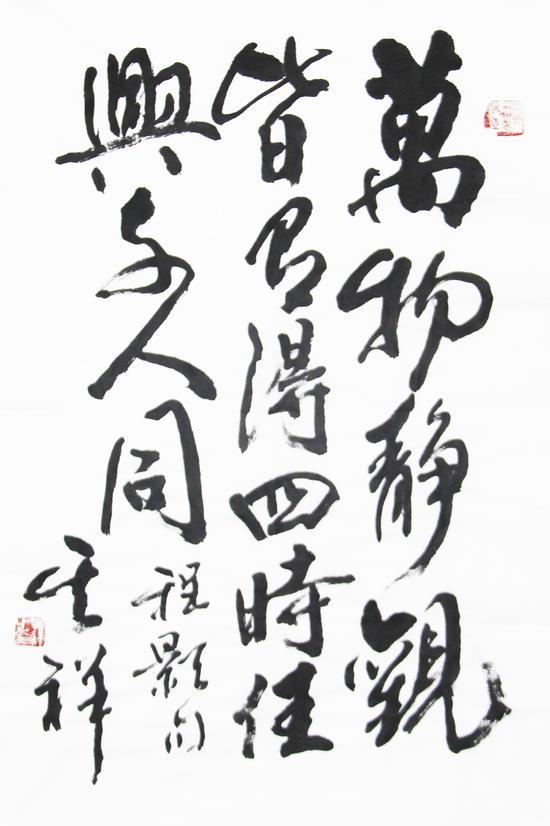 萬物靜觀
皆自得四時佳
興与人同
程顥句
祥